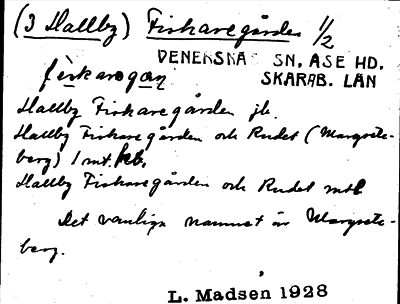 (3 Hallby) Fiskaregården 1/2
VÄNERSNÄS SN, ÅSE HD.
SKARAB. LÄN
fiskaregan
Hallby Fiskaregården jb.
Hallby Fiskaregården och Rudet (Margrete-
berg) 1 mt. kb.
Hallby Fiskaregården och Rudet mtl
Det vanliga namnet är Margrete-
berg.
L. Madsen 1928